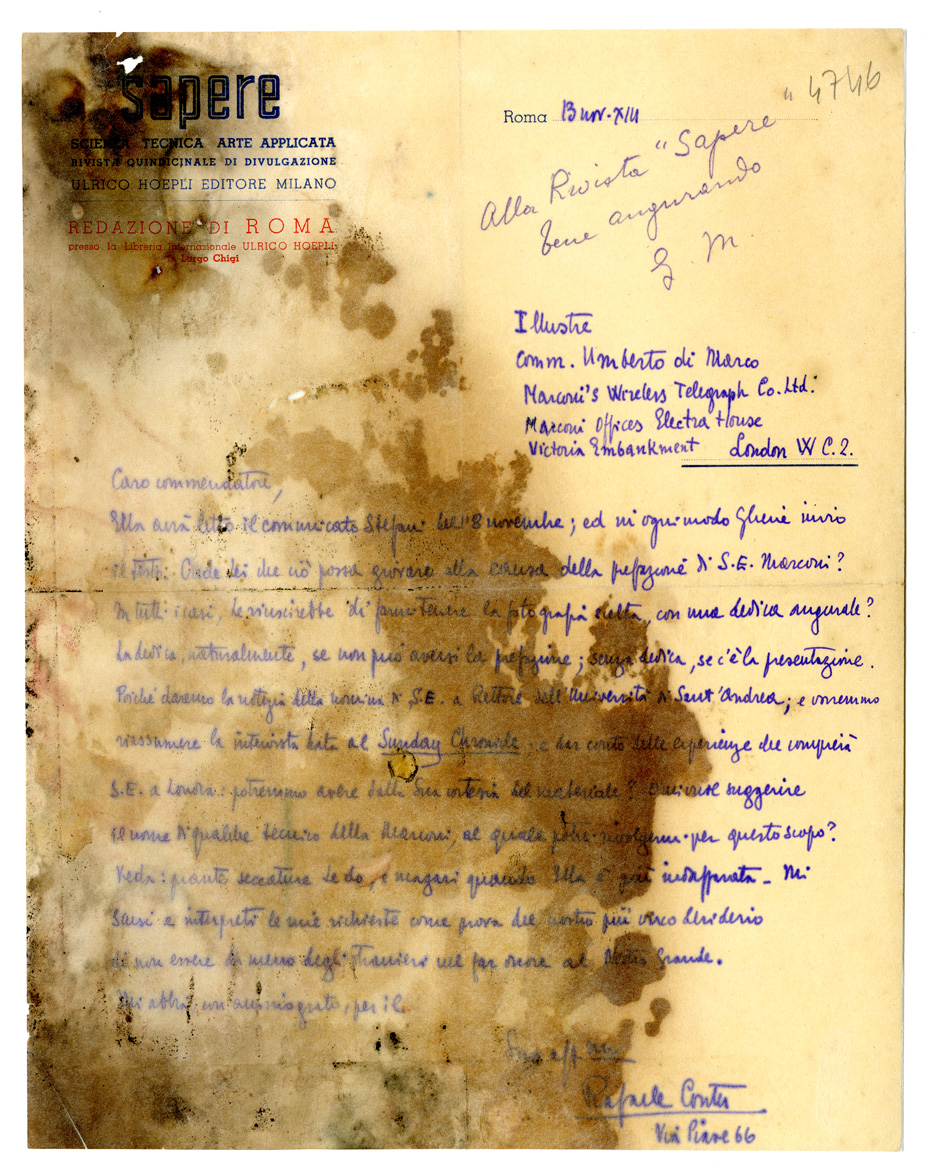 sapere
SCIENZA TECNICA ARTE APPLICATA
RIVISTA QUINDICINALE DI DIVULGAZIONE
ULRICO HOEPLI EDITORE MILANO
REDAZIONE DI ROMA
presso la Libreria Internazionale ULRICO HOEPLI
Largo Chigi
4746
Roma 13 nov. XIII
Alla Rivista "Sapere"
bene augurando
G. M.
Illustre
comm. Umberto di Marco
Marconi's Wireless Telegraph Co. Ltd.
Marconi Offices Electra House
Victoria Embankment London W C. 2.
Caro commendatore,
Ella avrà letto il comunicato Stefani dell'8 novembre; ed in ogni modo Gliene invio
il testo. Crede Lei che ciò possa giovare alla causa della prefazione di S.E. Marconi?
In tutti i casi, Le riuscirebbe di farmi tenere la fotografia scelta, con una dedica augurale?
La dedica, naturalmente, se non può aversi la prefazione; senza dedica, se c'è la presentazione.
Poiché daremo la notizia della nomina di S.E. a Rettore dell'Università di Sant'Andrea; e vorremmo
riassumere la intervista data al Sunday Chronicle e dar conto delle esperienze che compirà
S.E. a Londra: potremmo avere dalla Sua cortesia del materiale? O mi vuol suggerire
il nome di qualche tecnico della Marconi, al quale potrei rivolgermi per questo scopo?
Veda: quante seccature Le do, e magari quando Ella è già indaffarata. Mi
scusi e interpreti le mie richieste come prova del nostro più vivo desiderio
di non essere da meno degli stranieri nel far onore al Nostro Grande.
Mi abbia con animo grato, per il
Suo aff.mo
Rafaele Contu
Via Piave 66